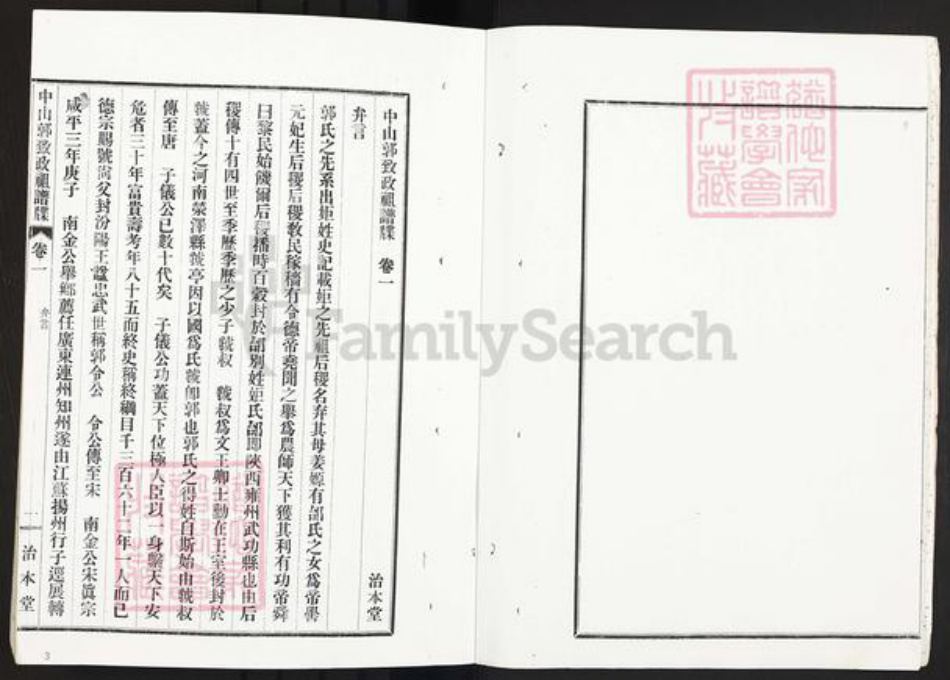 中山郭致政祖譜牒 卷一
治本堂
弁言
郭氏之先系出姬姓史記載姬之先祖后稷名弃其母姜嫄有邰氏之女為帝嚳
元妃生后稷后稷教民稼穡有令德帝堯聞之舉為農師天下獲其利有功帝舜
曰黎民始饑爾后稷播時百穀封於邰別姓姬氏邰即陝西雍州武功縣也由后
稷傳十有四世至季歷季歷之少子虢叔 虢叔為文王卿士勳在王室後封於
虢蓋今之河南滎澤縣虢亭因以國為氏虢即郭也郭氏之得姓自斯始由虢叔
傳至唐 子儀公已數十代矣 子儀公功蓋天下位極人臣以一身繫天下安
危者三十年富貴壽考年八十五而終史稱終綱目千三百六十二年一人而已
德宗賜號尚父封汾陽王諡忠武世稱郭令公 令公傳至宋 南金公宋眞宗
咸平三年庚子 南金公舉鄉薦任廣東連州知州遂由江蘇揚州行子巡展轉
中山郭致政祖譜牒 卷一 弁言 一 治本堂
3
FamilySearch